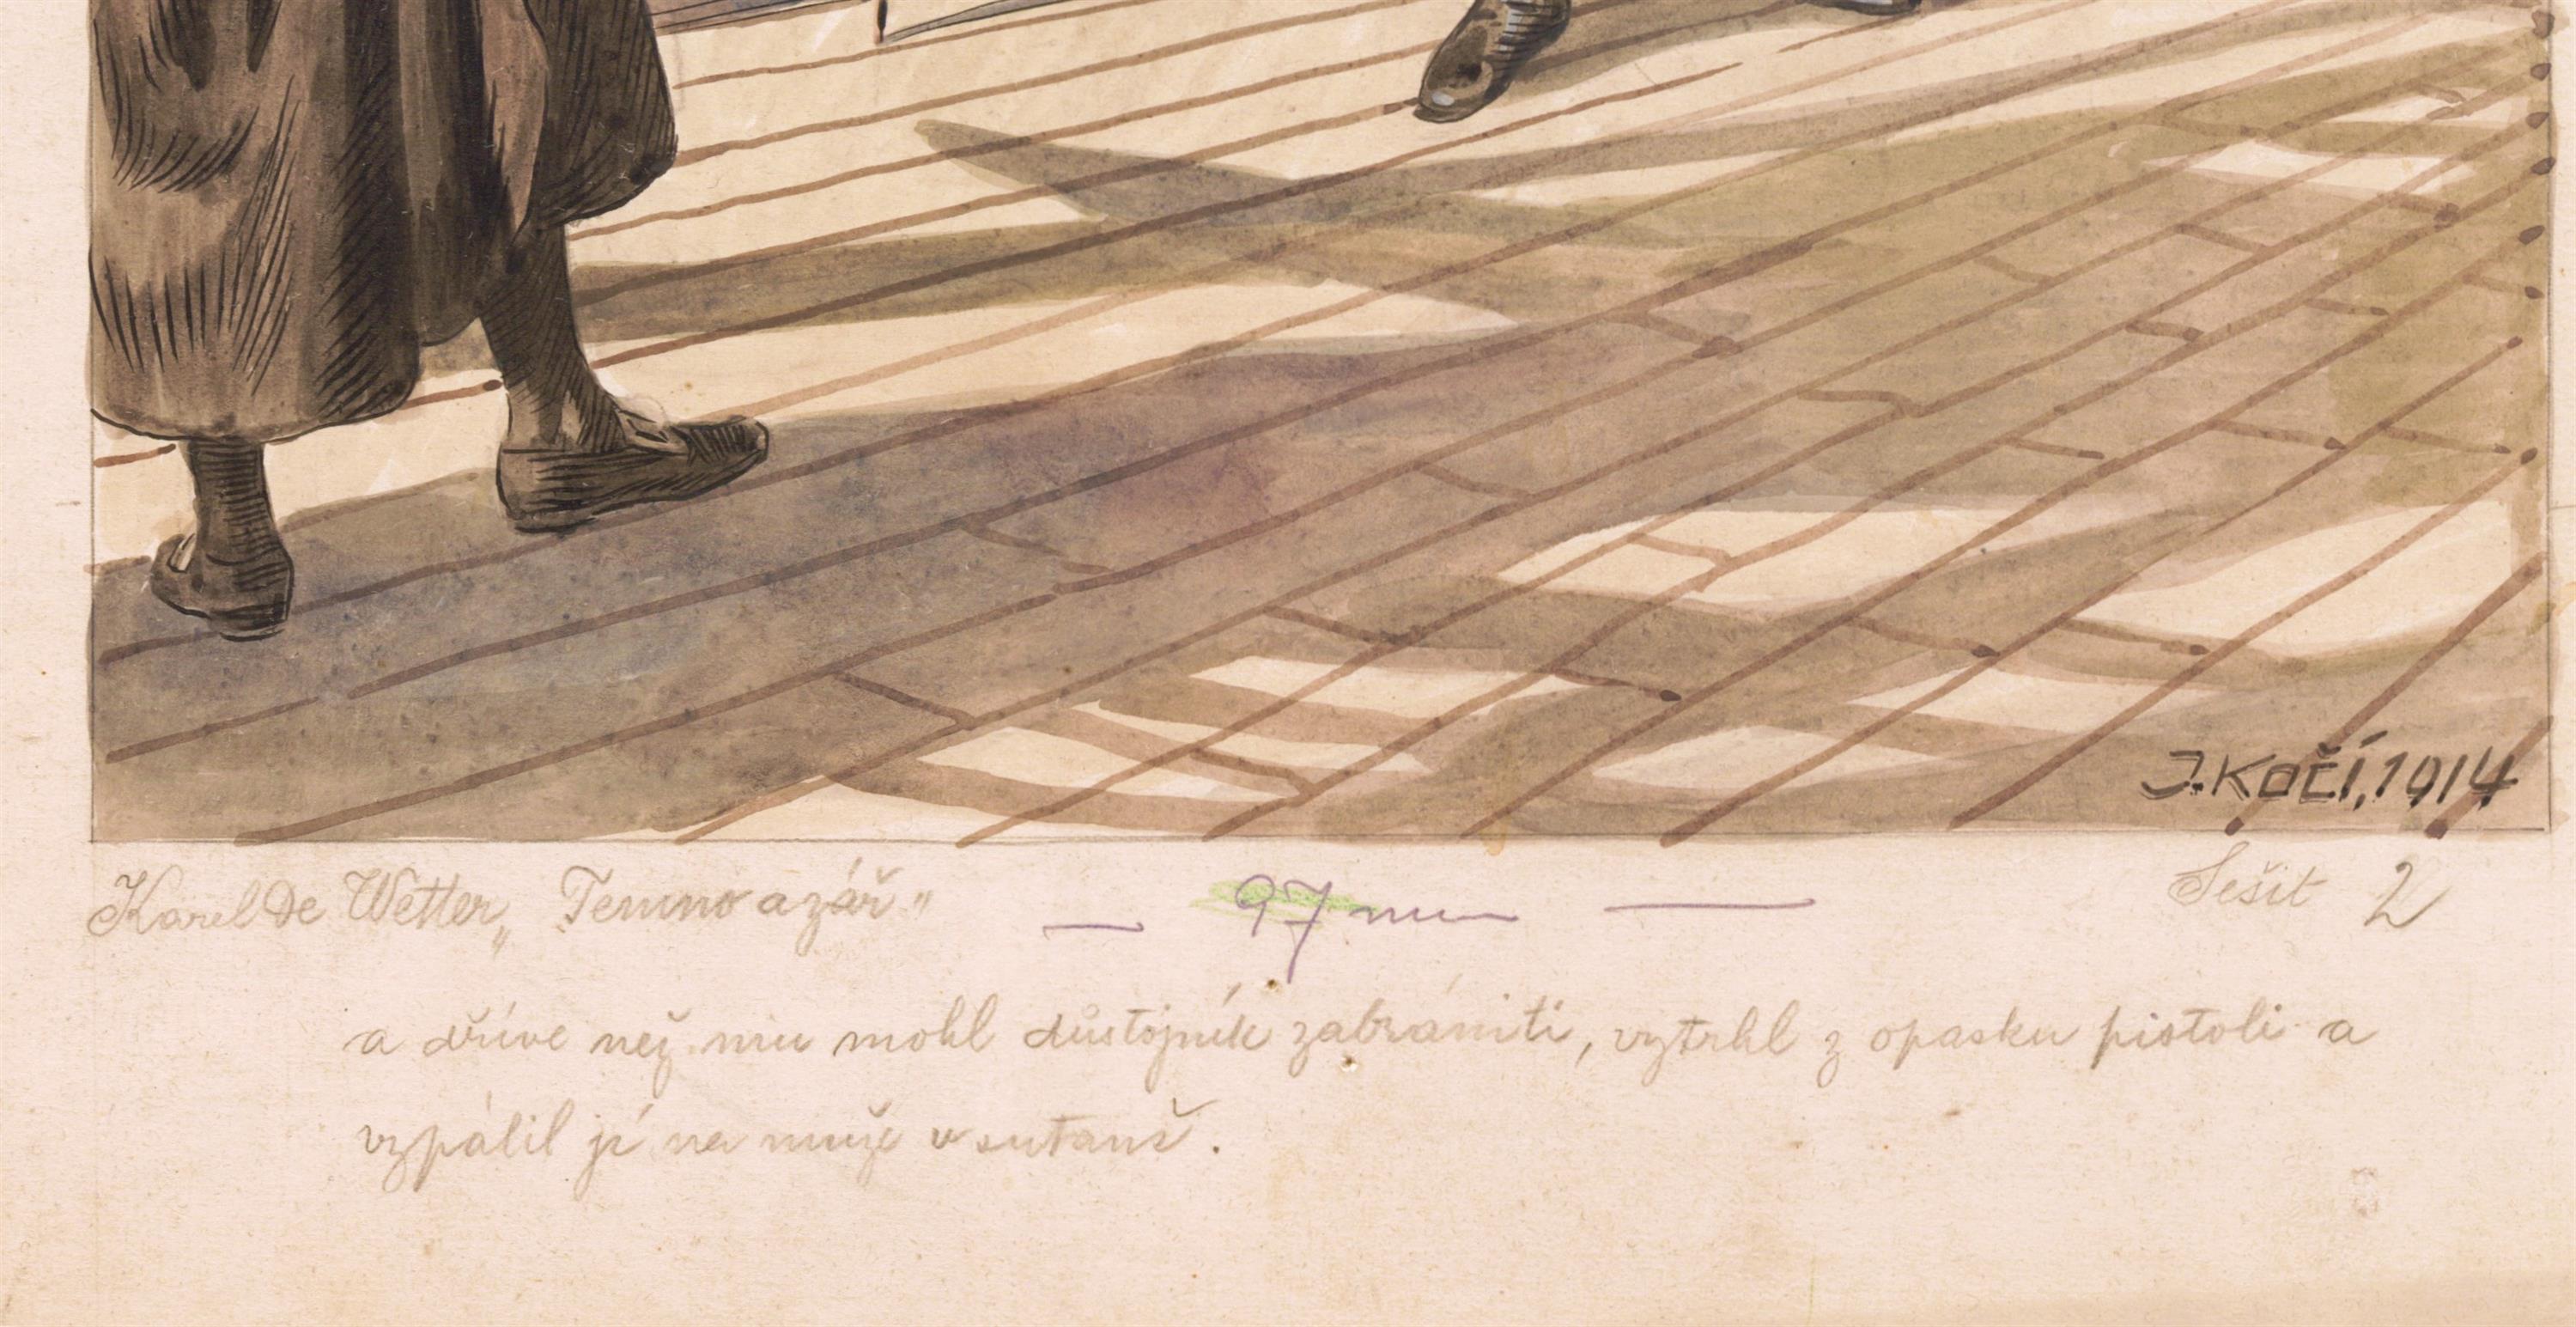 J. KOČÍ, 1914
Karel De Wetter „Temno a zář" — 97 mm — Sešit 2
a dříve než mu mohl důstojník zabrániti, vytrhl z opasku pistoli a
vypálil ji na muže v sutaně.